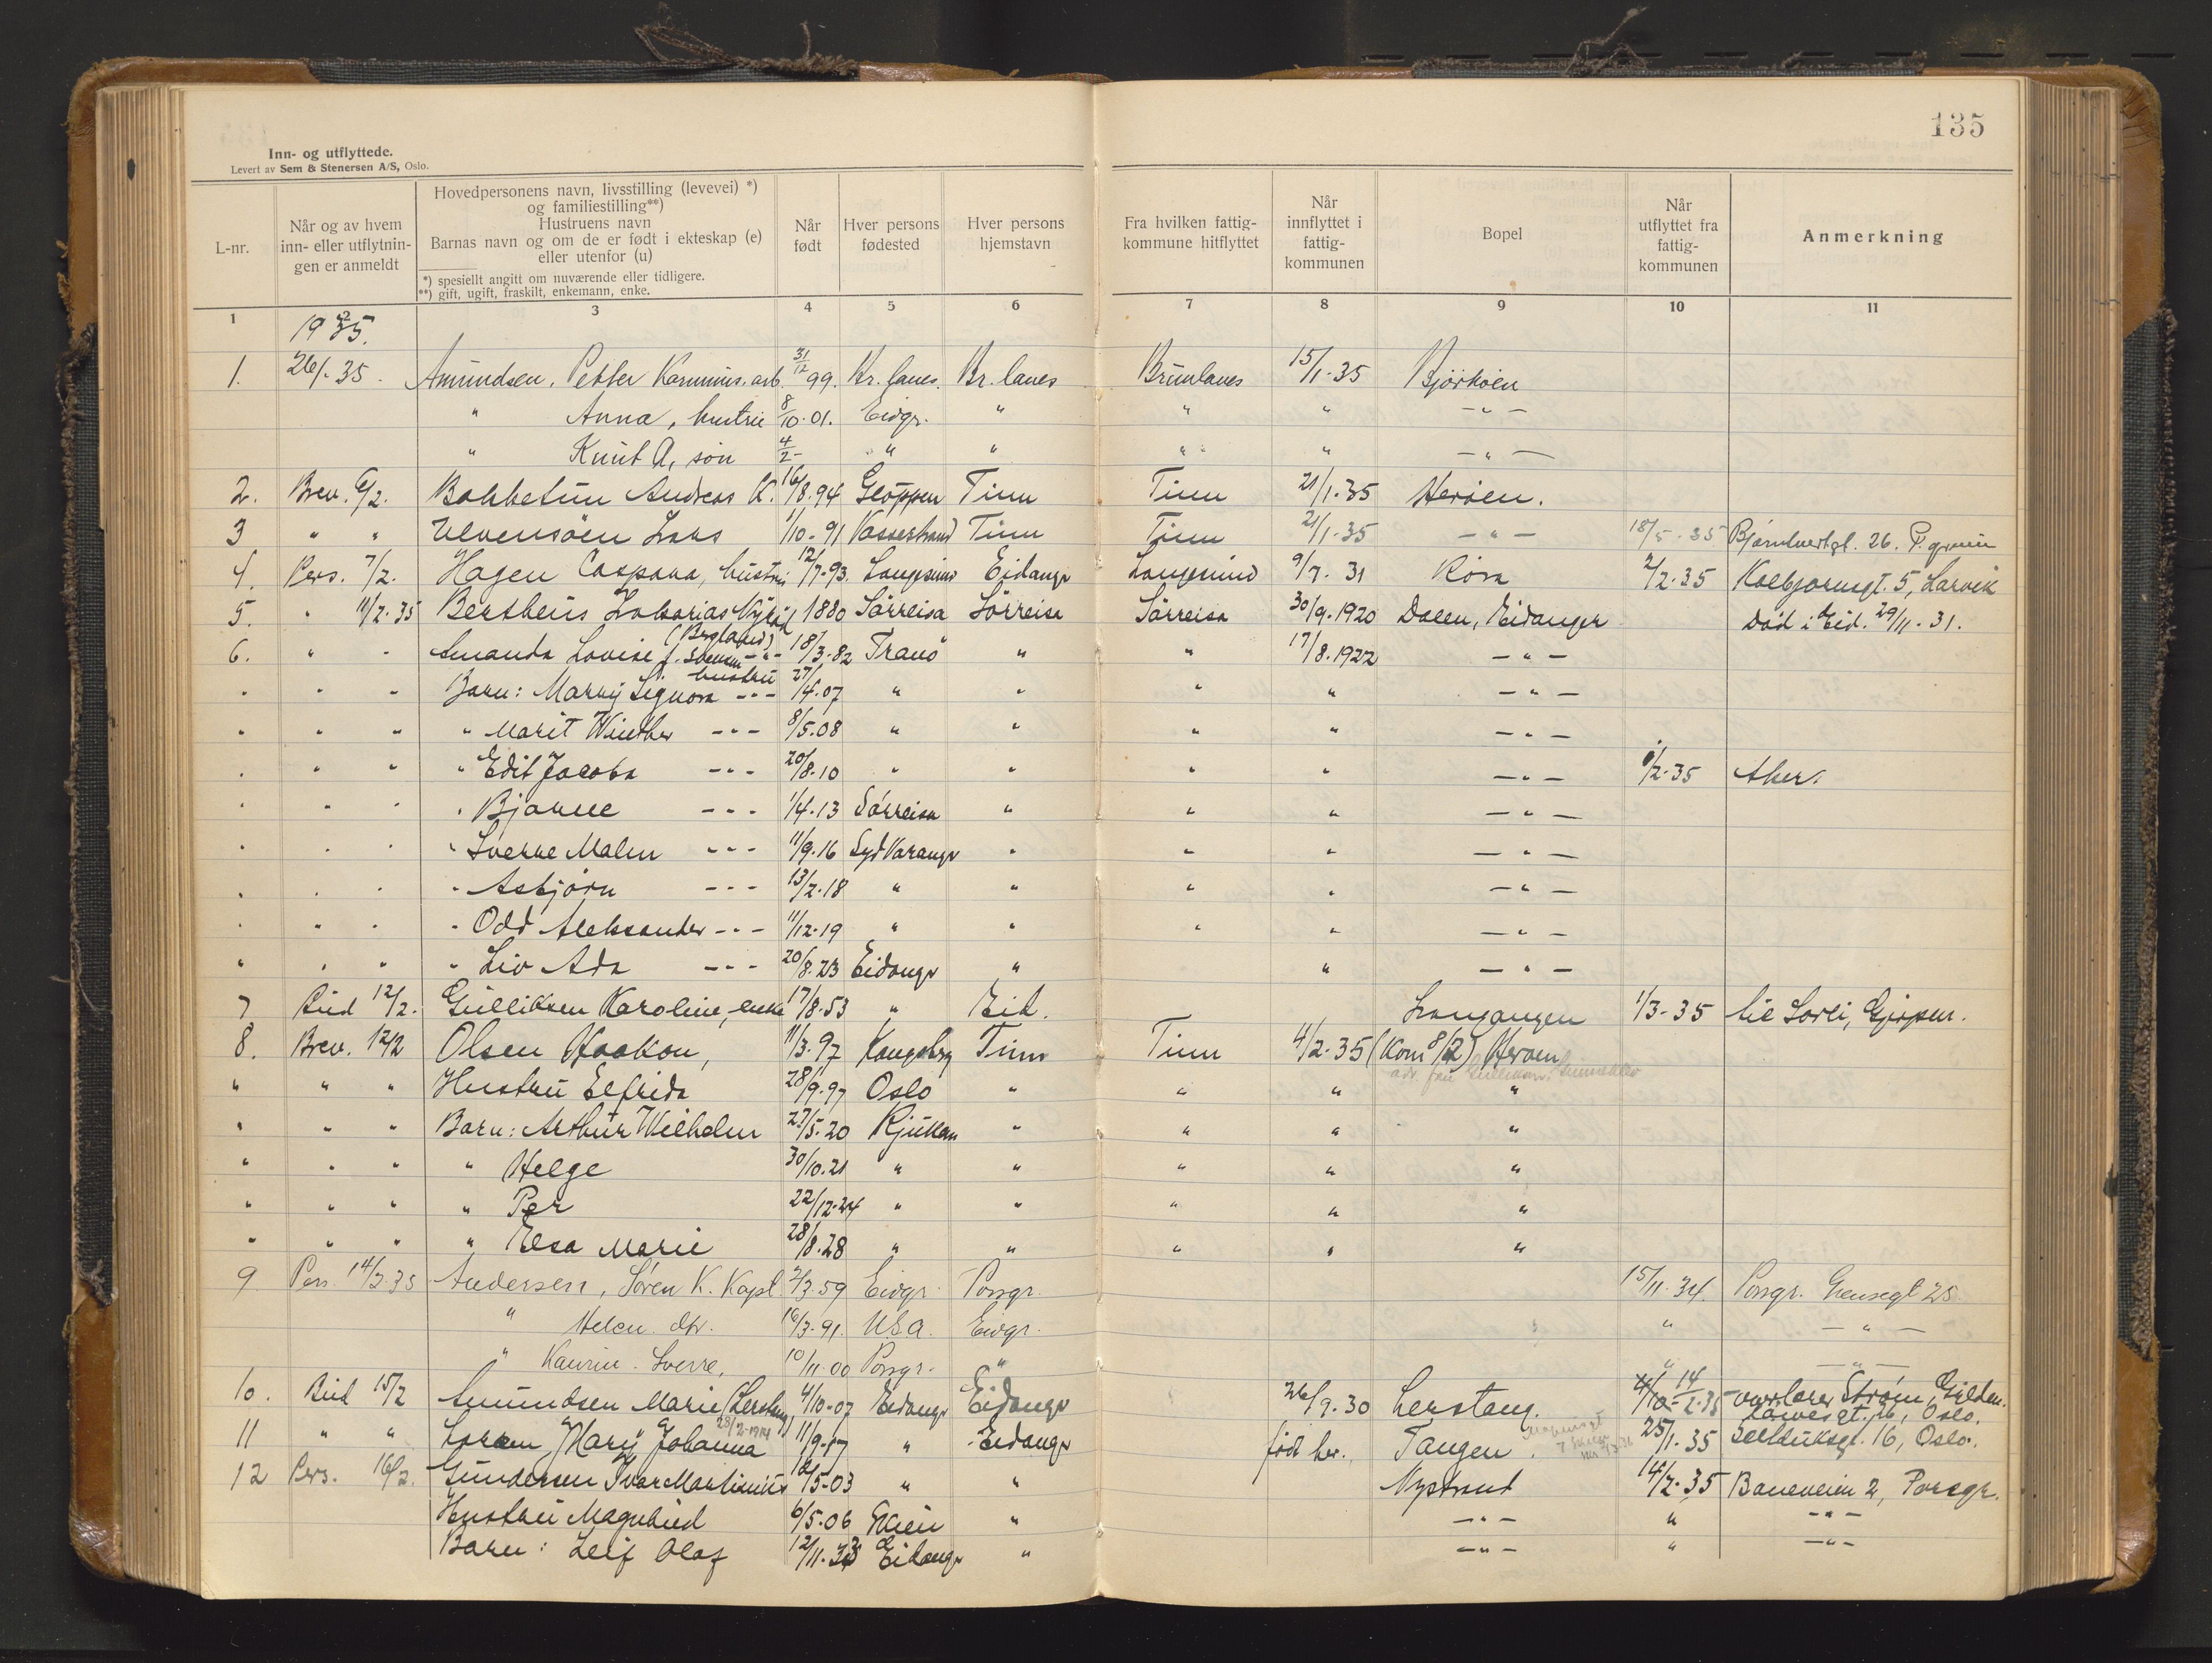 135
Inn- og utflyttede.
Levert av Sem & Stenersen A/S, Oslo.
L-nr. Når og av hvem inn- eller utflytnin- gen er anmeldt Hovedpersonens navn, livsstilling (levevei) *) og familiestilling**) Hustruens navn Barnas navn og om de er født i ekteskap (e) eller utenfor (u) *) spesiellt angitt om nuværende eller tidligere. **) gift, ugift, fraskilt, enkemann, enke. Når født Hver persons fødested Hver persons hjemstavn Fra hvilken fattig- kommune hitflyttet Når innflyttet i fattig- kommunen Bopel Når utflyttet fra fattig- kommunen Anmerkning
1 3 4 5 6 7 8 9 10 11
1935.
1. 26/1-35. Amundsen, Petter Kommus.arb. 31/12 99. Br.lanes. Br.lanes Brunlanes 15/1-35 Bjørkøen
" Anna, hustru 8/10-01. Eidgr. " " " -"-
" Knut A, søn 4/2- " " " " -"-
2. Brev. 6/2. Bakketun Andreas K. 16/8.94 Gloppen Tinn Tinn 21/1-35 Herøen.
3 " " Ulvensøen Lars 1/10-91 Vossestrand Tinn Tinn 21/1-35 -"- 18/5-35 Bjørntvedtgt. 26. P.grunn
4. Pers. 7/2. Hagen Caspara, hustru 12/7-93. Langesund Eidangr Langesund 9/7-31 Røra 2/2-35 Kolbjørnsgt. 5, Larvik
5. " 11/2-35 Bertheus Zakarias Nyland 1880 Sørreisa Sørreisa Sørreisa 30/9-1920 Dalen, Eidanger Død i Eid. 29/11-31.
(Bergland)
6. " " Amanda Lovise f. Svensen -"- 18/3-82 Tranø " " 17/8.1922 -"-
hustru
" " " Barn: Marry Signora -"- 27/4.07 " " " " -"-
" " " " Marit Winther -"- 8/5.08 " " " " -"-
" " " " Edit Jacoba -"- 20/8-10 " " " " -"- 1/2-35 Aker.
" " " " Bjarne -"- 1/4.13 Sørreisa " " " -"-
" " " " Sverre Malm -"- 11/9.16 Syd Varangr " " " -"-
" " " " Asbjørn -"- 13/2-18 " " " " -"-
" " " " Odd Aleksander -"- 11/12-19 " " " " -"-
" " " " Liv Ada -"- 20/8.23 Eidangr " " -"-
7 Bud 12/2. Gulliksen Karoline, enke 17/8-53 " Eid. Langangen 1/3-35 til Sorli, Gjerpen.
8. Brev. 12/2 Olsen Haakon, 11/3.97 Kongsberg Tinn Tinn 4/2-35 (kom 8/2) Herøen
" " " Hustru Elfrida 28/9-97 Oslo " " " "
" " " Barn: Arthur Wilhelm 27/5-20 Rjukan " " " "
" " " " Helge 30/10.21 " " " " "
" " " " Per 22/12-24 " " " " "
" " " " Elsa Marie 28/8-28 " " " " "
9 Pers. 14/2 35 Andersen, Søren K. Kapt. 2/3.59 Eidgr. Porsgr. 15/11.34. Porsgr. 25
" Helen. dtr. 16/3-91. U.S.A. Eidgr. " -"-
" Kaurin. Sverre, 10/11-00 Porsgr. " " -"-
10. Bud 15/2 Amundsen Marie (Lerstang) 4/10-07 Eidangr Eidangr 26/9.30 Lerstang. 14/2-35 Strøm, Gylden-
løvesgt. 16, Oslo.
28/2-1914
11 " " Larsen, Mary Johanna 11/9-17 " Eidangr født her. Tangen. 25/1-35 Seilduksgt. 16, Oslo.
12 Pers. 16/2. Gundersen Ivar Martinius 12/5-03 " " Nystrand 14/2-35 Baneveien 2, Porsgr.
Hustru Magnhild 6/5-06 Skien " -"- " -"-
Barn: Leif Olaf 12/11-33 Eidangr " -"- " -"-